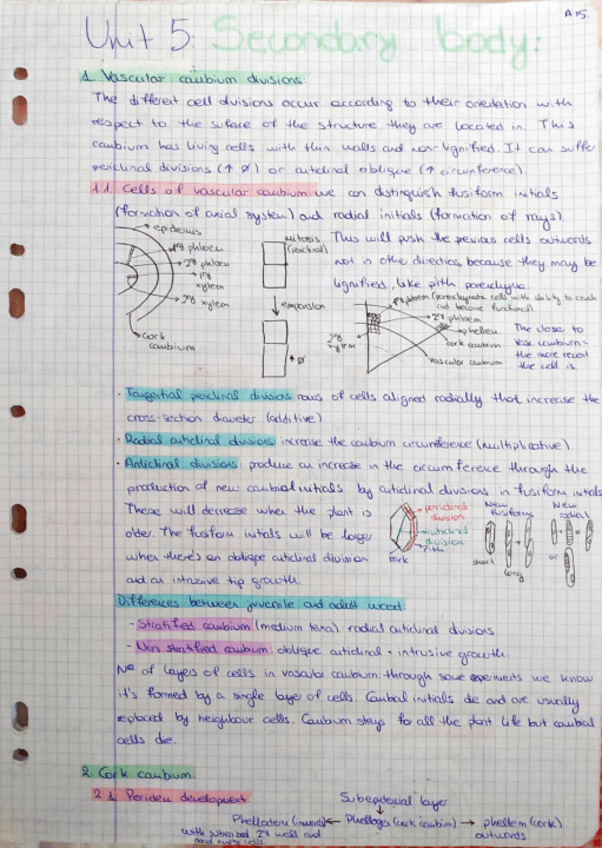 A15.
Unit 5: Secondary body:
1. Vascular cambium divisions:
The different cell divisions occur according to their orientation with
respect to the surface of the structure they are located in. This
cambium has living cells with thin walls and non-lignified. It can suffer
periclinal divisions (↑ Ø) or anticlinal oblique (↑ circumference).
1.1. Cells of vascular cambium: we can distinguish fusiform initials
(formation of axial system) and radial initials (formation of rays).
epidermis
1ry phloem
2ry phloem
1ry
xylem
2ry xylem
cork
cambium
mitosis
(periclinal)
expansion
↑ Ø
This will push the previous cells outwards
not in other direction, because they may be
lignified, like pith parenchyma.
1ry phloem (parenchymatic cells with ability to crush
and become functional)
2ry phloem
phellem
cork cambium
vascular cambium
2ry
xylem
The close to
vasc cambium =
the more recent
the cell is.
· Tangential periclinal divisions rows of cells aligned radially that increase the
cross-section diameter (additive).
· Radial anticlinal divisions increase the cambium circumference (multiplicative).
· Anticlinal divisions produce an increase in the circumference through the
production of new cambial initials by anticlinal divisions in fusiform initials
These will decrease when the plant is
older. The fusiform initials will be longer
when there's an oblique anticlinal division
and an intrusive tip growth.
periclinal
division
anticlinal
division
pith
bark
New
fusiforms
short
long
New
radial
or
Differences between juvenile and adult wood:
- Stratified cambium (medium taxa): radial anticlinal divisions.
- Non stratified cambium: oblique anticlinal + intrusive growth.
Nº of layers of cells in vascular cambium: through some experiments we know
it's formed by a single layer of cells. Cambial initials die and are usually
replaced by neighbour cells. Cambium stays for all the plant life but cambial
cells die.
2. Cork cambium
2.1. Periderm development
Subepidermal layer
Phelloderm (inwards) ← Phellogen (cork cambium) → phellem (cork)
outwards
with suberized 2ry wall and
dead empty cells